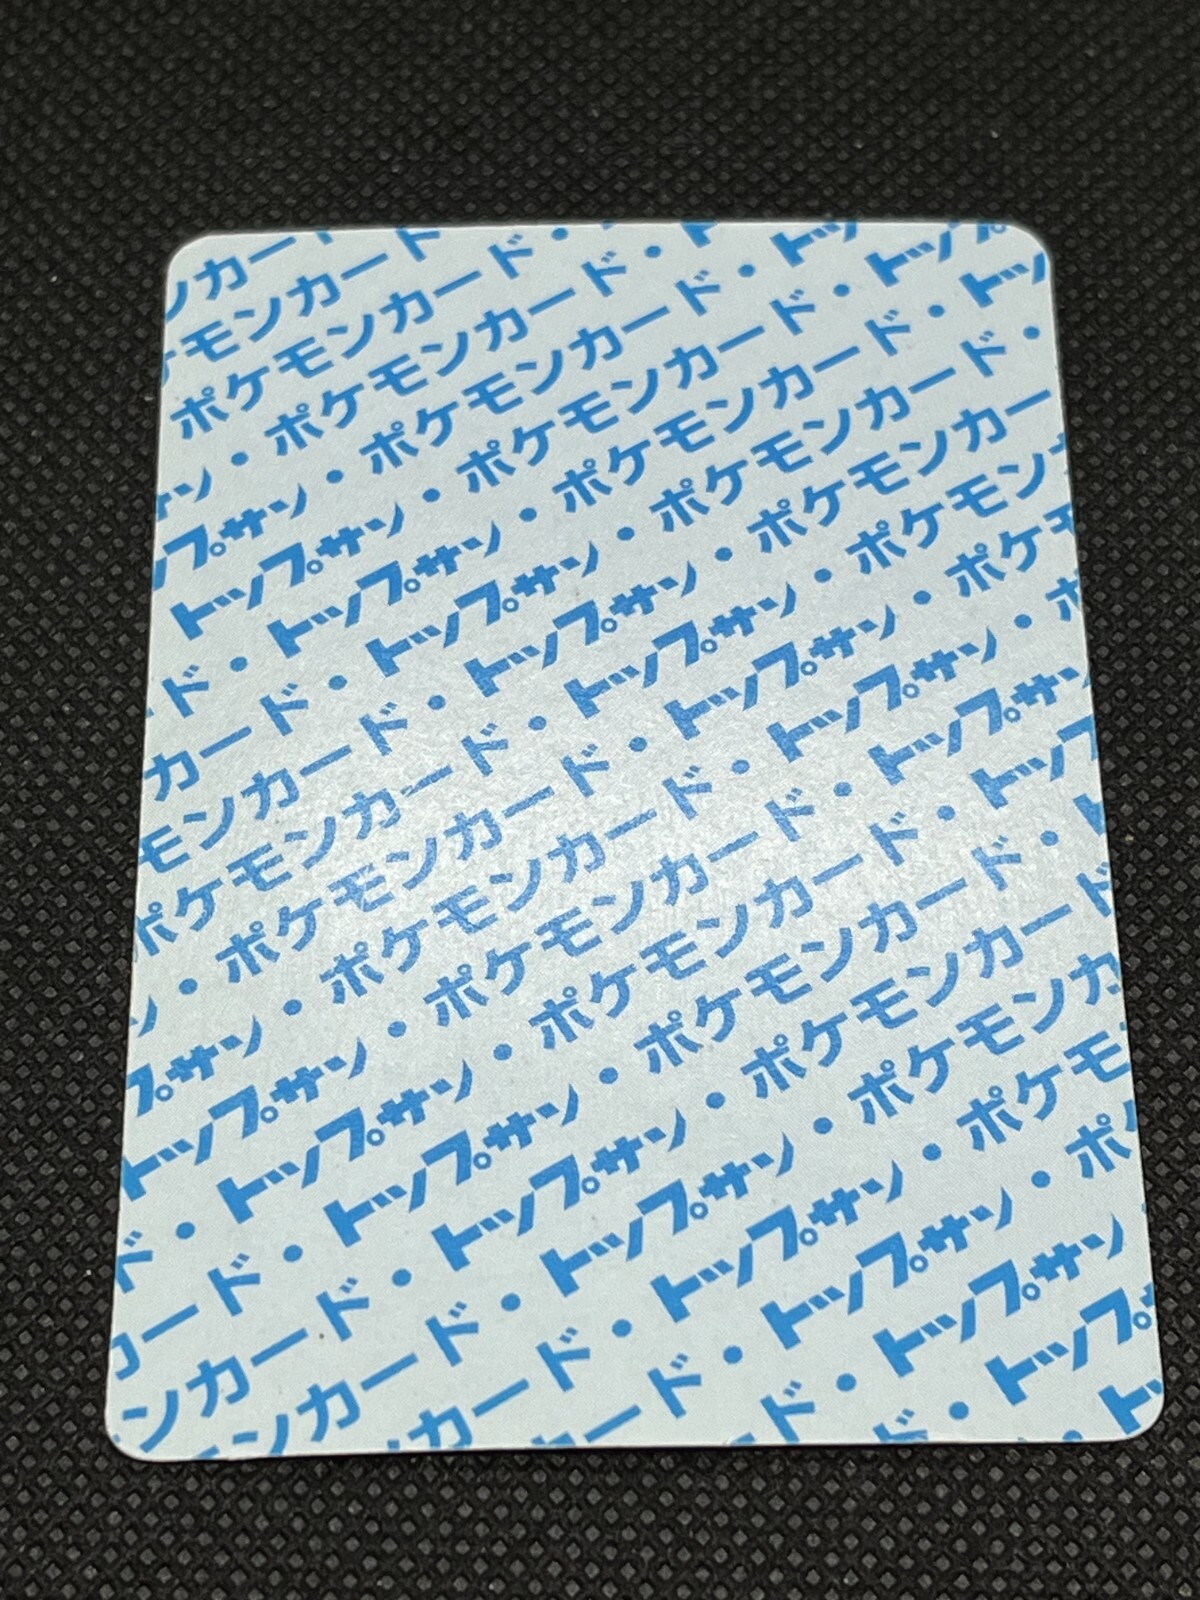 ンカー
ケモンカード
ポケモンカード・
サン・ポケモンカード・ト
プサン・ポケモンカード・トッ
トップサン・ポケモンカード・トップ
ド・トップサン・ポケモンカード・トッ
カード・トップサン・ポケモンカード・
モンカード・トップサン・ポケモンカー
ポケモンカード・トップサン・ポケモン
ン・ポケモンカード・トップサン・ポケ
プサン・ポケモンカード・トップサン・ポ
トップサン・ポケモンカード・トップサン
ド・トップサン・ポケモンカード・トップ
カード・トップサン・ポケモンカード・ト
ンカード・トップサン・ポケモンカード
ンカード・トップサン・ポケモンカ
カード・トップサン・ポケモ
ード・トップサン・ポ
ド・トップサン
・トップ
ト